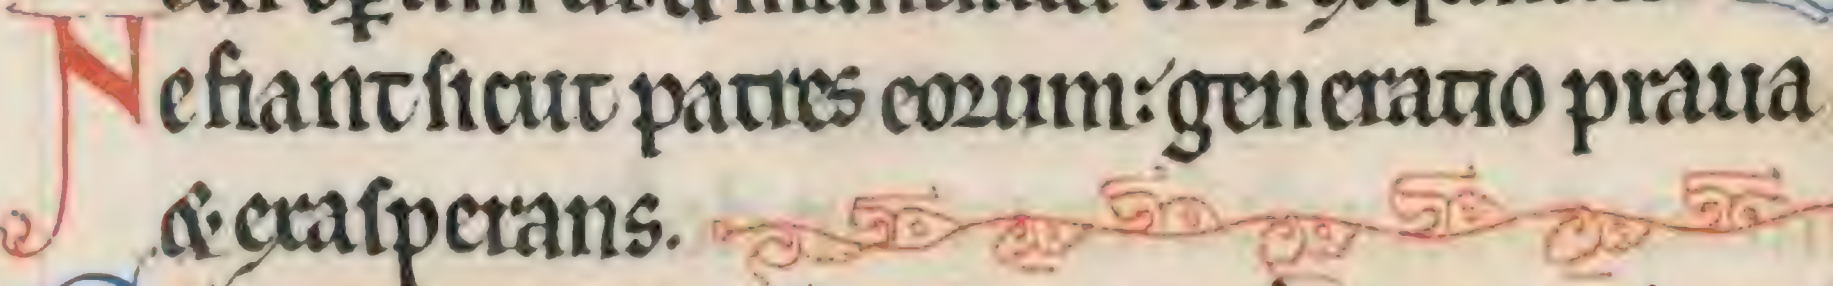 Ne fiant sicut patres eorum: generatio praua
& exasperans.